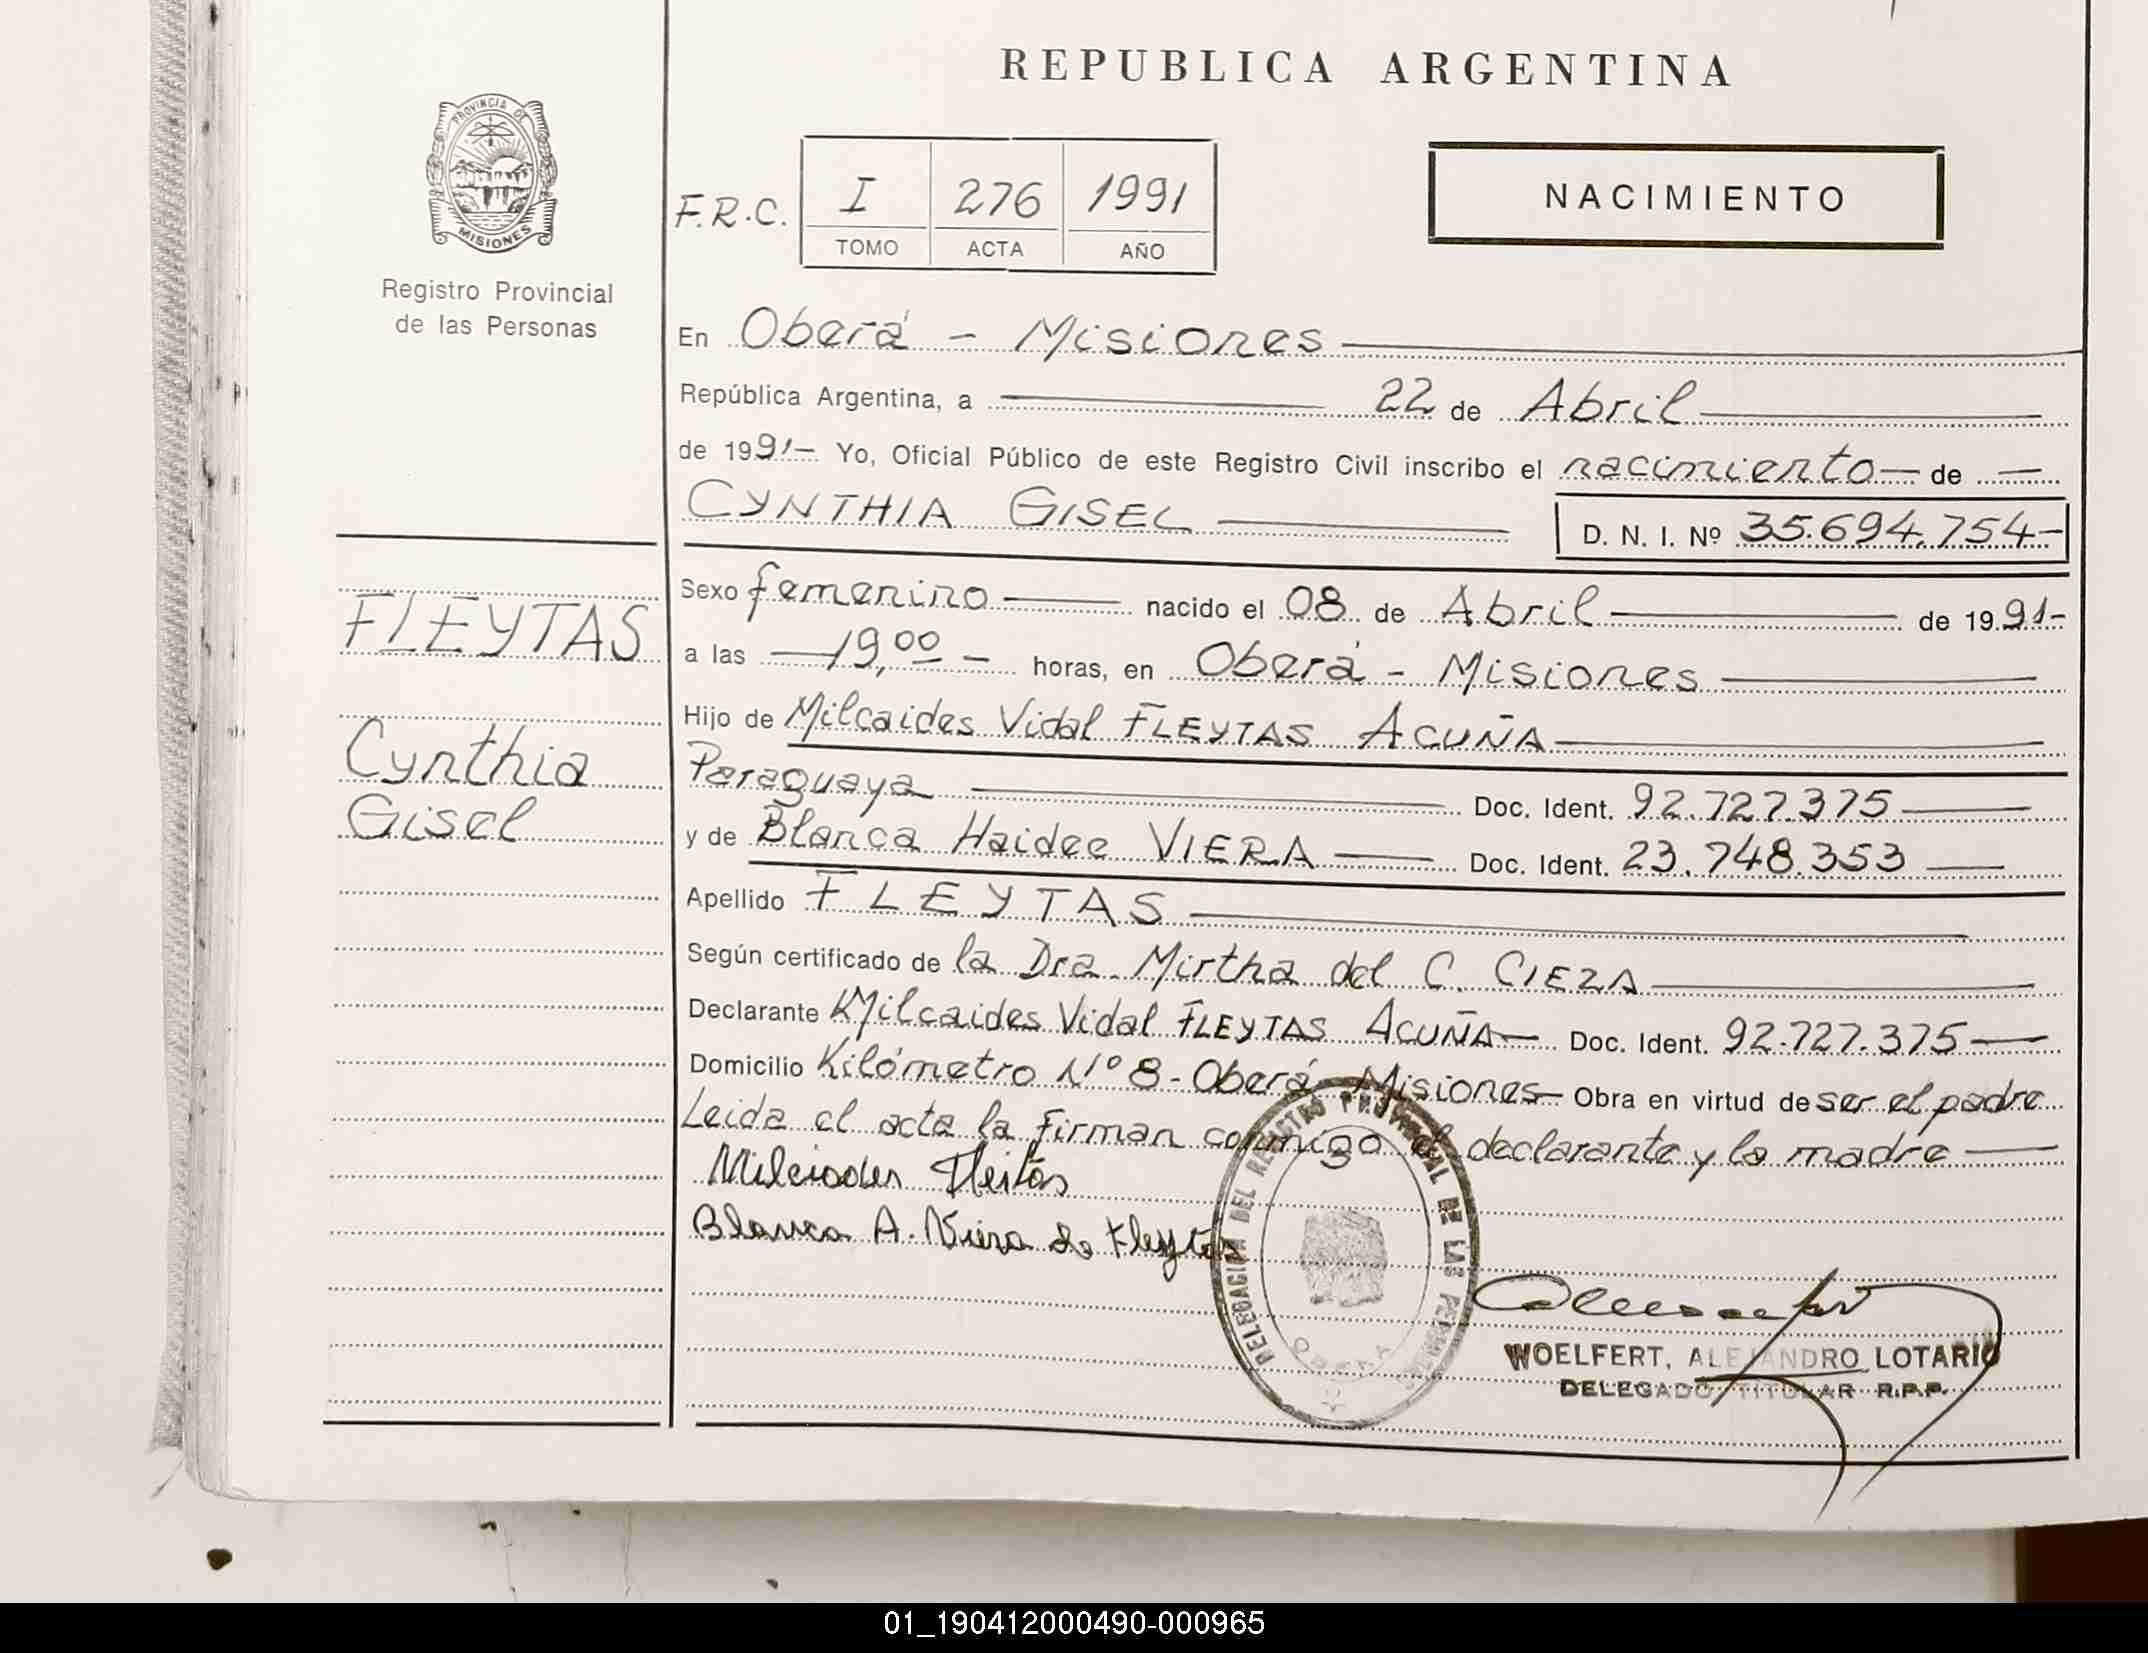 REPUBLICA ARGENTINA
PROVINCIA DE
MISIONES
Registro Provincial
de las Personas
F.R.C.
I 276 1991
TOMO ACTA AÑO
NACIMIENTO
En Oberá - Misiones
República Argentina, a 22 de Abril
de 1991- Yo, Oficial Público de este Registro Civil inscribo el nacimiento de
CYNTHIA GISEL
D. N. I. Nº 35.694.754-
FLEYTAS
Cynthia
Gisel
Sexo femenino nacido el 08 de Abril de 1991-
a las 19,00 - horas, en Oberá - Misiones
Hijo de Milcaides Vidal FLEYTAS ACUÑA
Paraguaya Doc. Ident. 92.727.375
y de Blanca Haidee VIERA Doc. Ident. 23.748.353
Apellido FLEYTAS
Según certificado de la Dra. Mirtha del C. CIEZA
Declarante Milcaides Vidal FLEYTAS ACUÑA Doc. Ident. 92.727.375
Domicilio Kilómetro Nº 8 - Oberá Misiones Obra en virtud de ser el padre
Leida el acta la firman conmigo el declarante y la madre
Milciades Fleitas
Blanca A. Viera de Fleytas
DELEGACION DEL REGISTRO PROVINCIAL DE LAS PERSONAS
OBERA
WOELFERT, ALEJANDRO LOTARIO
DELEGADO TITULAR R.P.P.
01_190412000490-000965